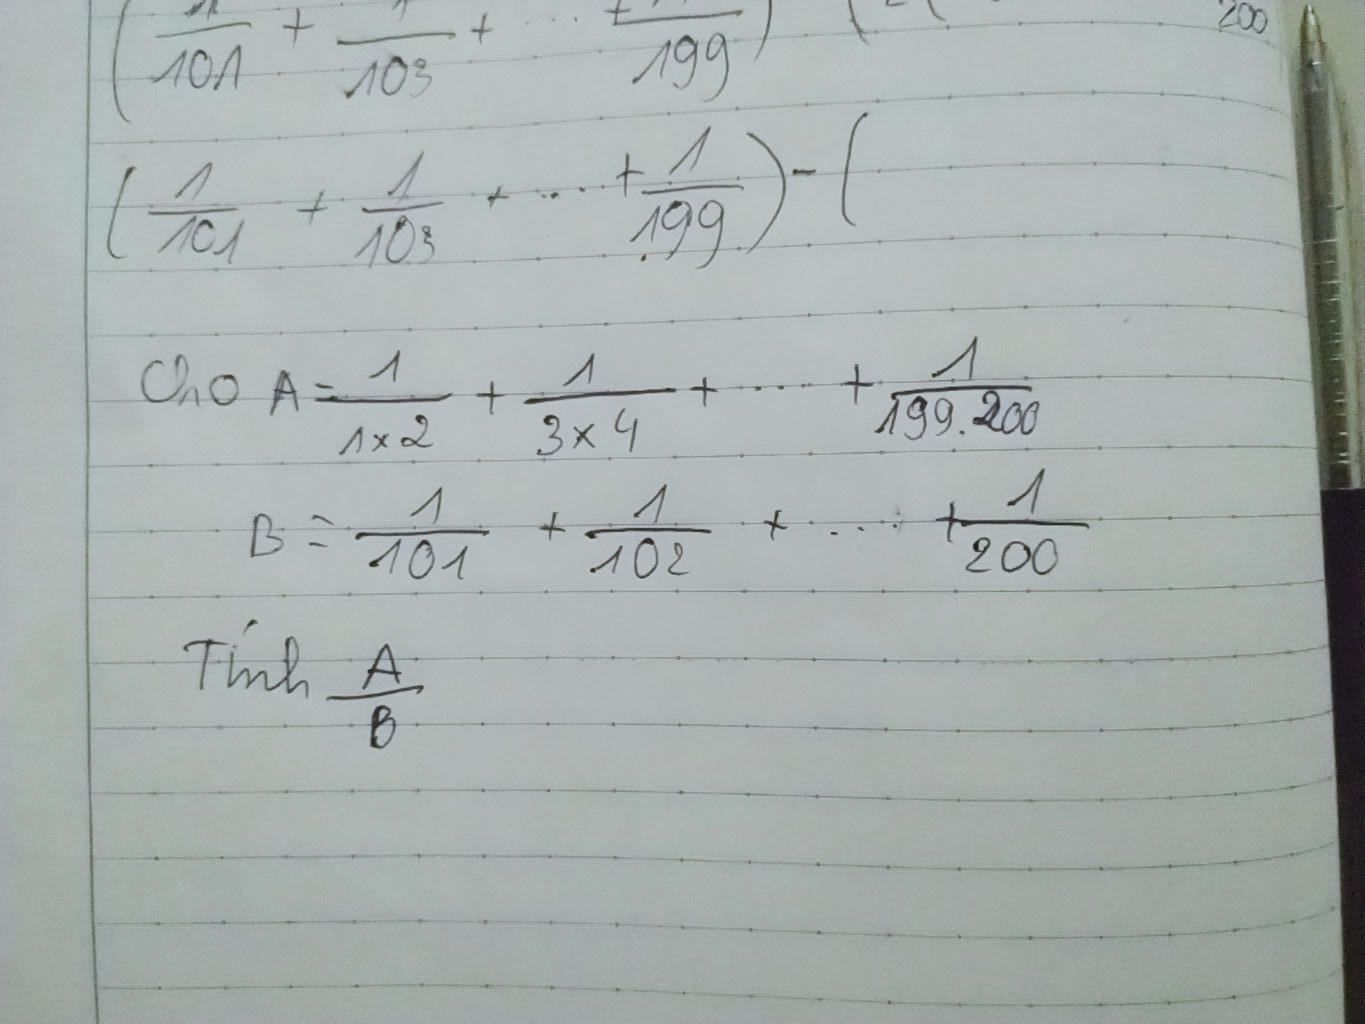 (1/101 + 1/103 + ... + 1/199) (2( 200
(1/101 + 1/103 + ... + 1/199) - (
Cho A = 1/1×2 + 1/3×4 + .... + 1/199.200
B = 1/101 + 1/102 + .... + 1/200
Tính A/B